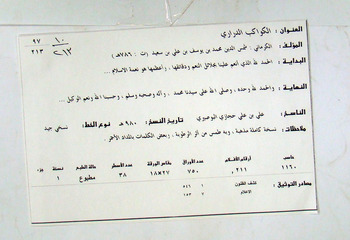 العنوان : الكواكب الدراري
١٠ ٩٧
٢١٢ ٢١٣
المؤلف : الكرماني : شمس الدين محمد بن يوسف بن علي بن سعيد (ت : ٧٨٦هـ)
البداية : الحمد لله الذي أنعم علينا بجلائل النعم ودقائقها ، وأعظمها هو نعمة الاسلام ...
النهاية : والحمد لله وحده ، وصلى الله على سيدنا محمد ، وآله وصحبه وسلم ، وحسبنا الله ونعم الوكيل ...
الناسخ : علي بن علي حجازي تاريخ النسخ : ٩٨٠هـ نوع الخط : نسخي جيد
ملاحظات : نسخة كاملة مذهبة ، وبه طمس من أثر الرطوبة ، وبعض الكلمات بالمداد الأحمر .
خاص أرقام الأفلام عدد الأوراق مقاس الورقة عدد الأسطر حالة الطبع نسخة جزء
١١٦٠ ٢١١ ، ٧٥٠ ٢٧×١٨ ٣٨ مطبوع ١
مصادر التوثيق : كشف الظنون ١ ٥٤٦
الاعلام ٧ ١٥٣